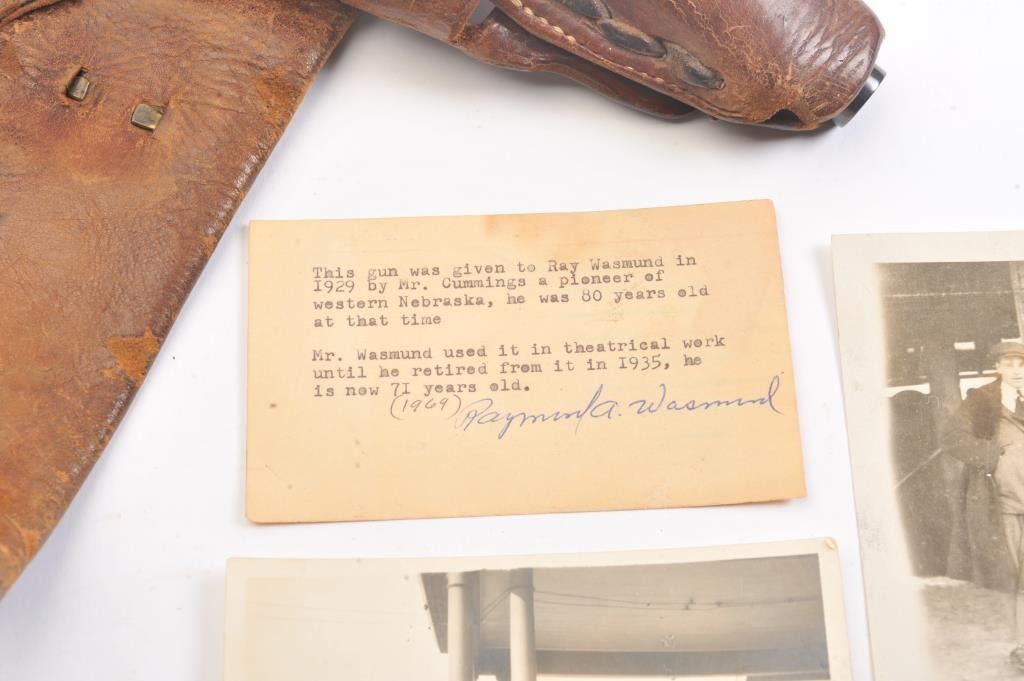 This gun was given to Ray Wasmund in
I929 by Mr. Cummings a pioneer of
western Nebraska, he was 80 years old
at that time
Mr. Wasmund used it in theatrical work
until he retired from it in I935, he
is now 7I years old.
(1969) Raymond A. Wasmund